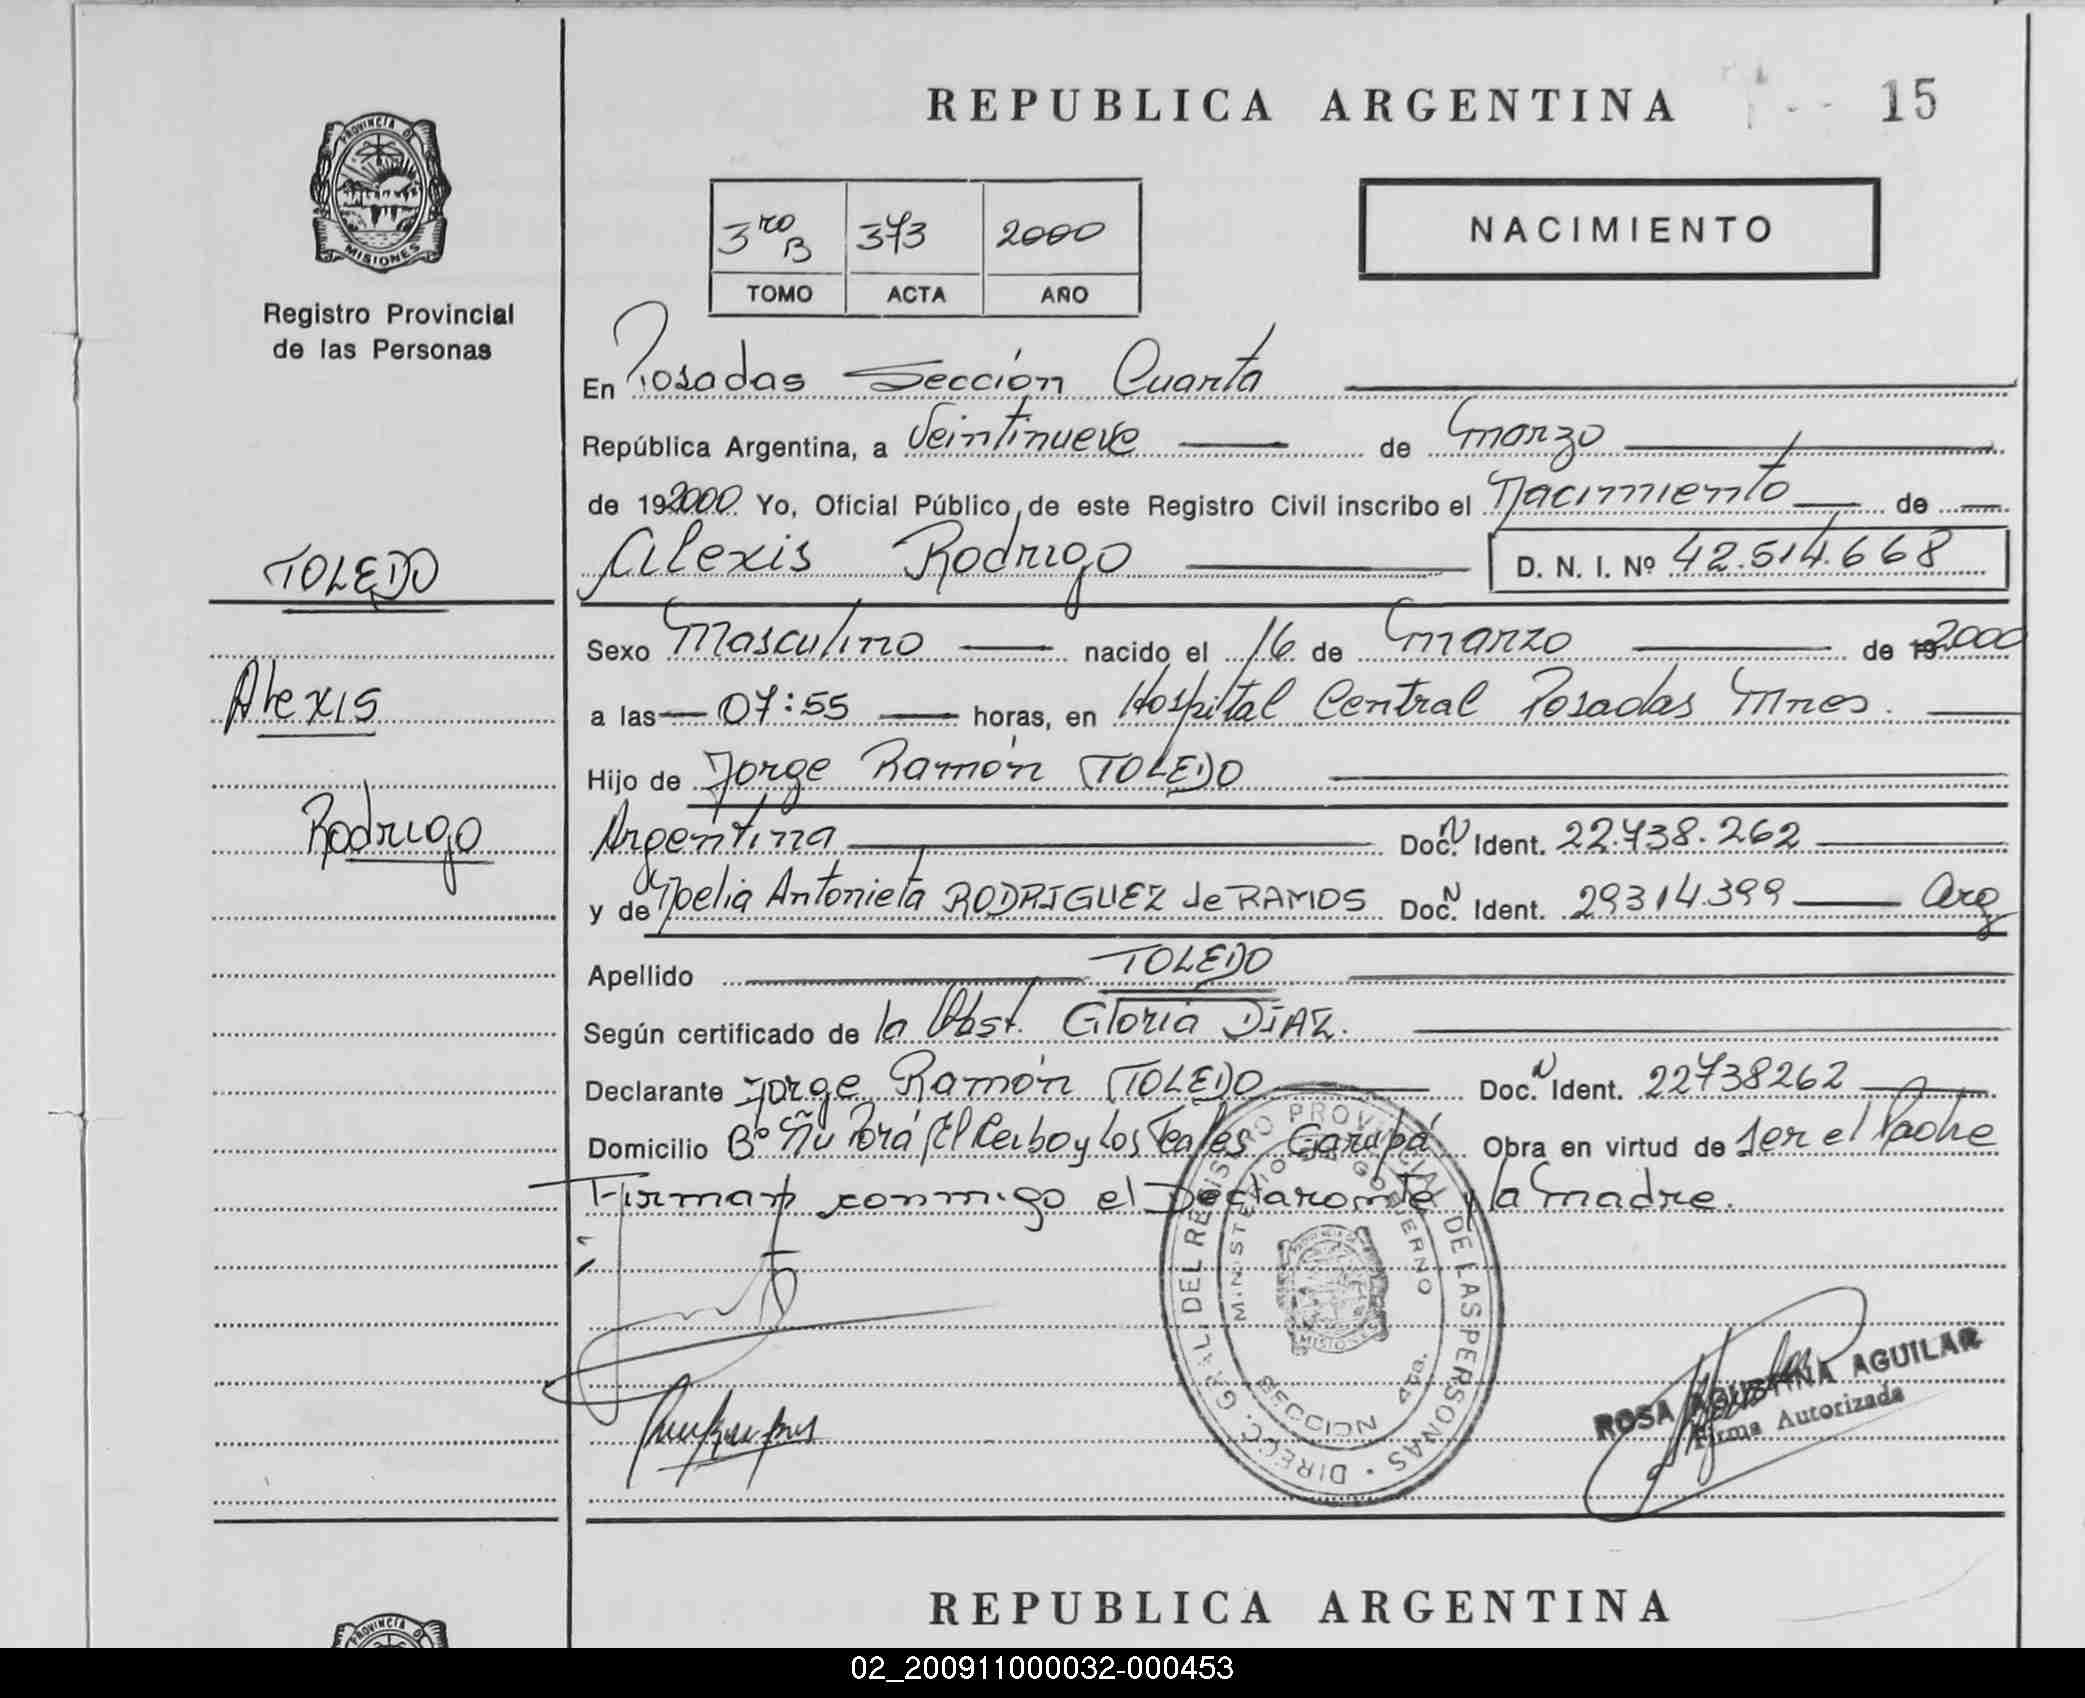 REPUBLICA ARGENTINA
15
PROVINCIA D
MISIONES
Registro Provincial
de las Personas
3ro B 373 2000
TOMO ACTA AÑO
NACIMIENTO
En Posadas Sección Cuarta
República Argentina, a Veintinueve de Marzo
de 192000 Yo, Oficial Público, de este Registro Civil inscribo el Nacimiento de
TOLEDO
Alexis Rodrigo D. N. I. Nº 42.514.668
Sexo Masculino nacido el 16 de Marzo de 192000
Alexis
a las 07:55 horas, en Hospital Central Posadas Mnes.
Hijo de Jorge Ramón TOLEDO
Rodrigo
Argentina Doc.N Ident. 22.738.262
y de Noelia Antonieta RODRIGUEZ de RAMOS Doc.N Ident. 29314.399 Arg
Apellido TOLEDO
Según certificado de la Obst. Gloria DiAZ.
Declarante Jorge Ramón TOLEDO Doc.N Ident. 22738262
Domicilio Bº Ñu Porá El Ceibo y Los Teales Garupá Obra en virtud de ser el Padre
Firman conmigo el Declarante y la Madre.
DIRECC. GRAL. DEL REGISTRO PROVINCIAL DE LAS PERSONAS
MINISTERIO DE GOBIERNO
MISIONES
SECCION 4ta.
ROSA AGUSTINA AGUILAR
Firma Autorizada
REPUBLICA ARGENTINA
PROVINCIA D
02_200911000032-000453